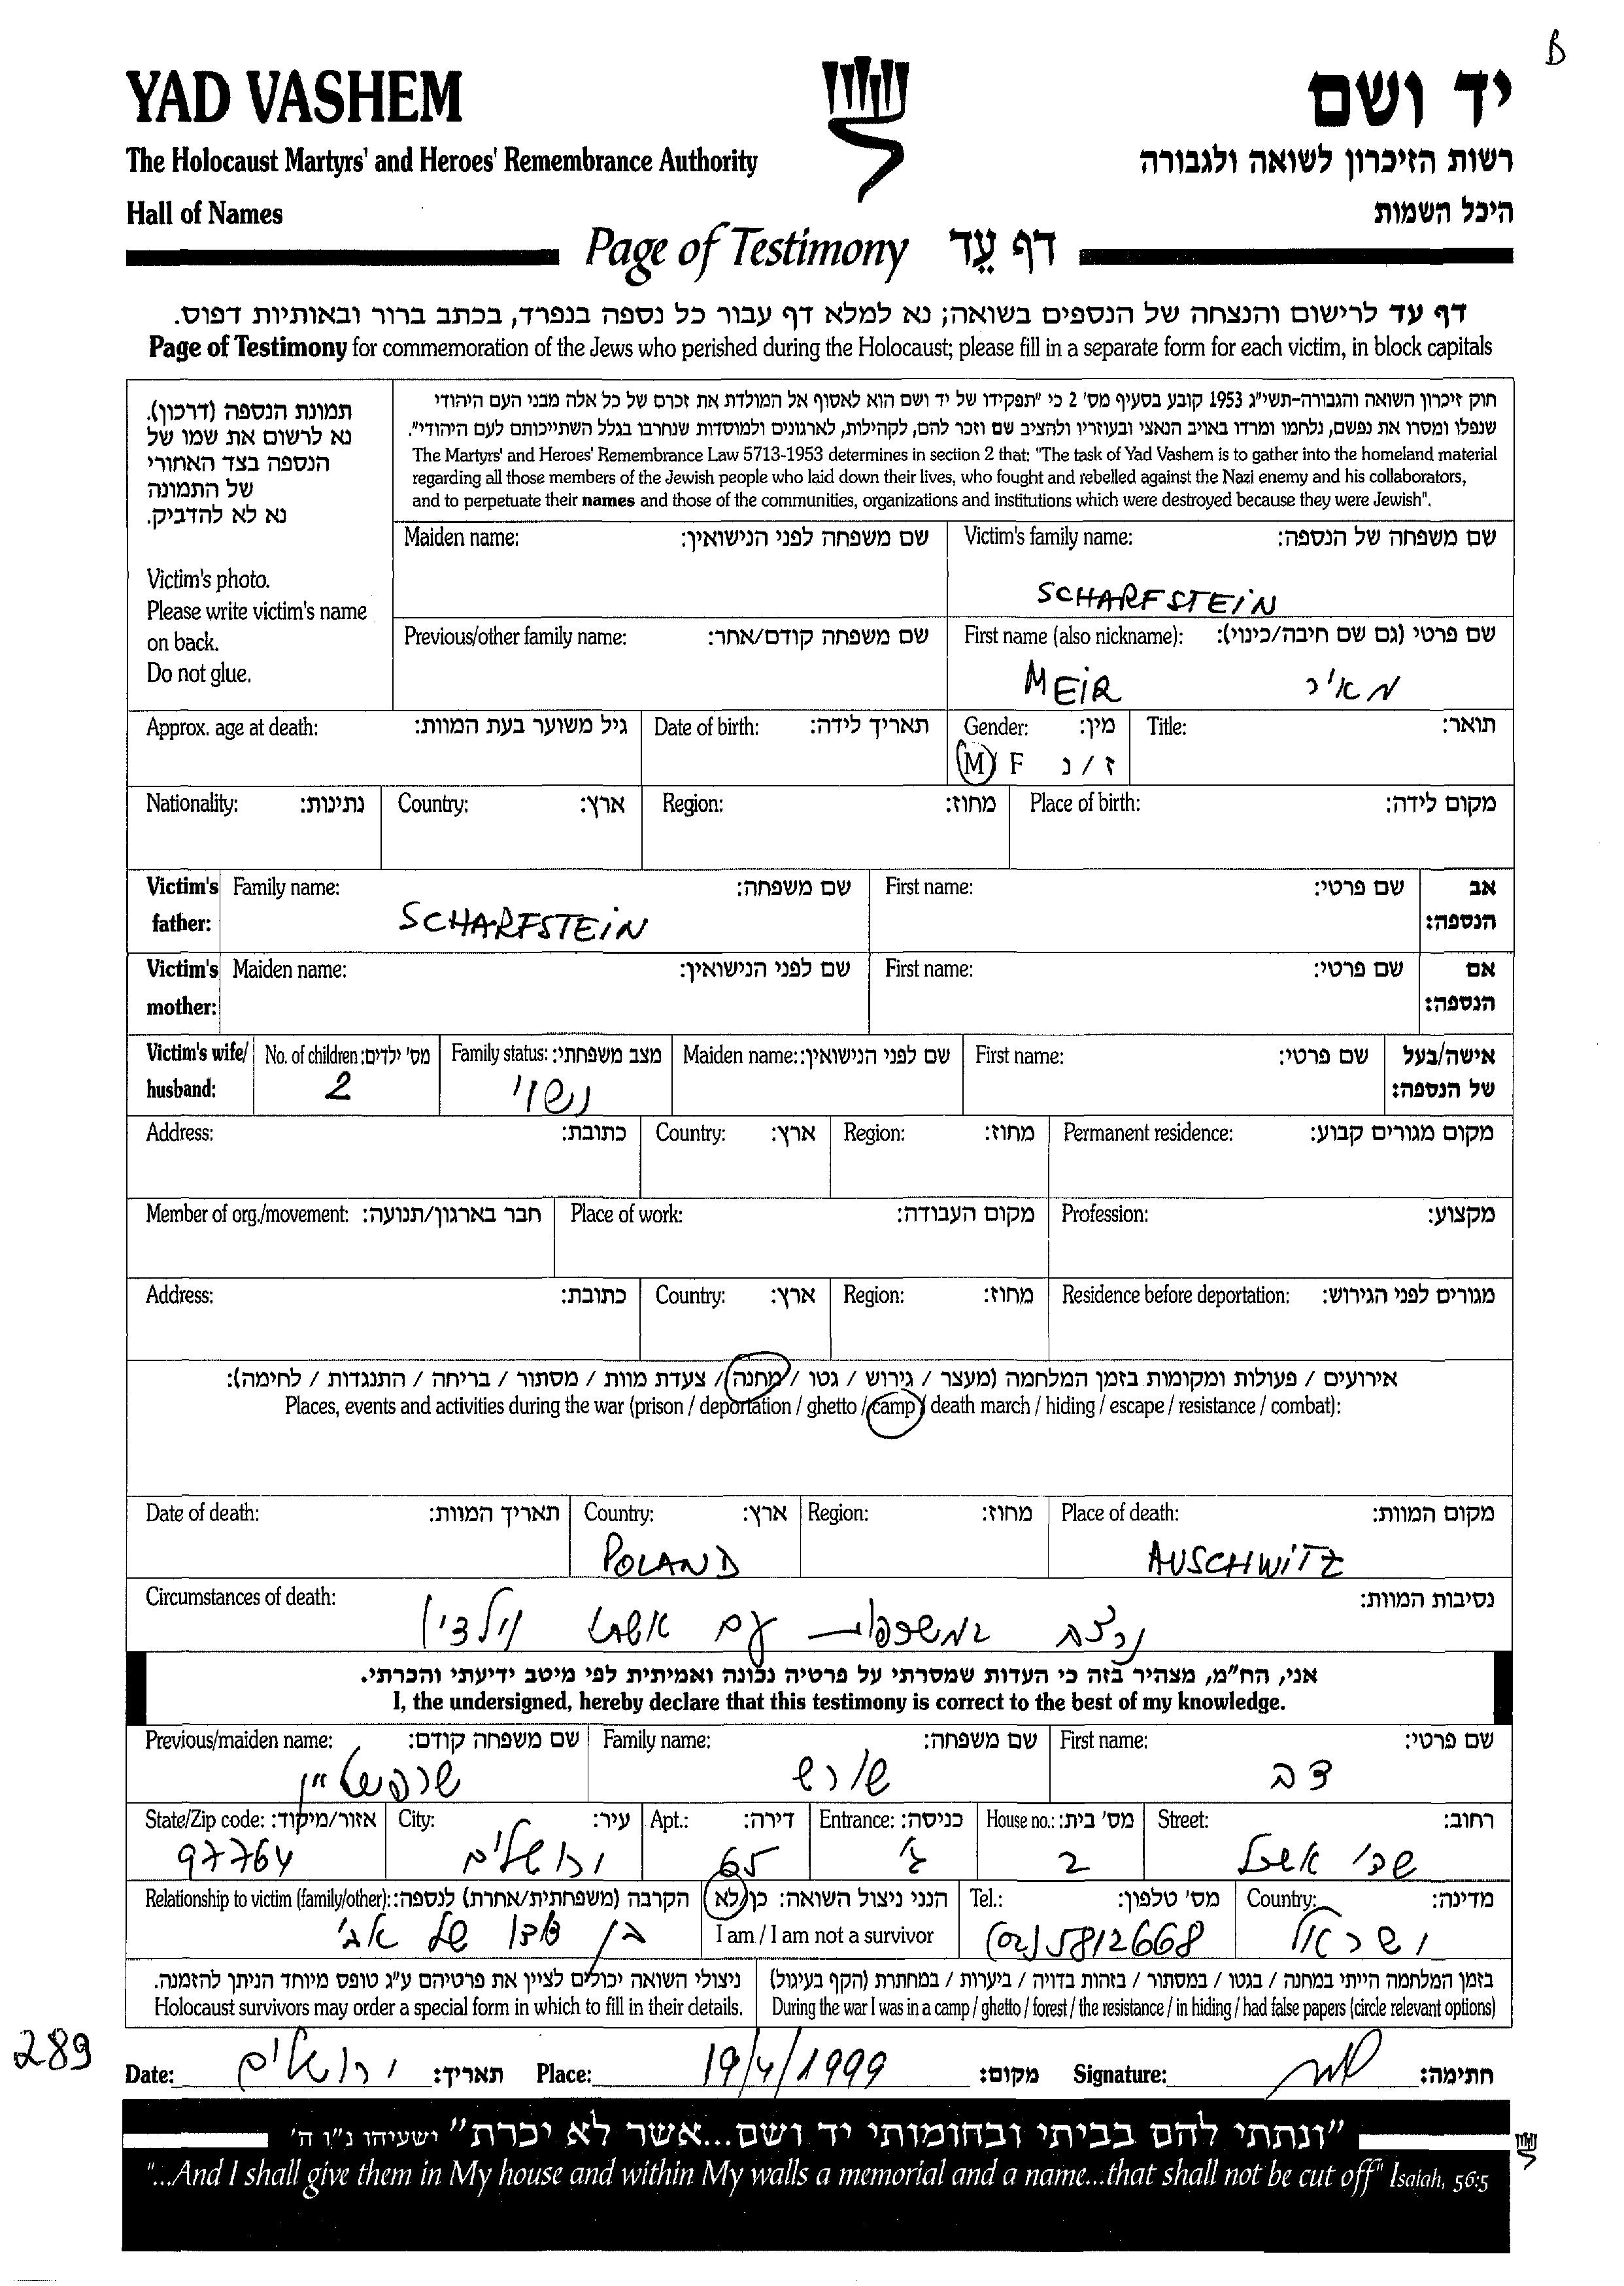 B
YAD VASHEM
יד ושם
The Holocaust Martyrs' and Heroes' Remembrance Authority
רשות הזיכרון לשואה ולגבורה
Hall of Names
היכל השמות
Page of Testimony דף עֵד
דף עד לרישום והנצחה של הנספים בשואה; נא למלא דף עבור כל נספה בנפרד, בכתב ברור ובאותיות דפוס.
Page of Testimony for commemoration of the Jews who perished during the Holocaust; please fill in a separate form for each victim, in block capitals
תמונת הנספה (דרכון).
נא לרשום את שמו של
הנספה בצד האחורי
של התמונה
נא לא להדביק.
Victim's photo.
Please write victim's name
on back.
Do not glue.
חוק זיכרון השואה והגבורה-תשי"ג 1953 קובע בסעיף מס' 2 כי "תפקידו של יד ושם הוא לאסוף אל המולדת את זכרם של כל אלה מבני העם היהודי
שנפלו ומסרו את נפשם, נלחמו ומרדו באויב הנאצי ובעוזריו ולהציב שם וזכר להם, לקהילות, לארגונים ולמוסדות שנחרבו בגלל השתייכותם לעם היהודי".
The Martyrs' and Heroes' Remembrance Law 5713-1953 determines in section 2 that: "The task of Yad Vashem is to gather into the homeland material
regarding all those members of the Jewish people who laid down their lives, who fought and rebelled against the Nazi enemy and his collaborators,
and to perpetuate their names and those of the communities, organizations and institutions which were destroyed because they were Jewish".
Maiden name: שם משפחה לפני הנישואין: Victim's family name: שם משפחה של הנספה:
SCHARFSTEIN
Previous/other family name: שם משפחה קודם/אחר: First name (also nickname): שם פרטי (גם שם חיבה/כינוי):
MEIR מאיר
Approx. age at death: גיל משוער בעת המוות: Date of birth: תאריך לידה: Gender: מין: Title: תואר:
M F ז / נ
Nationality: נתינות: Country: ארץ: Region: מחוז: Place of birth: מקום לידה:
Victim's father: Family name: שם משפחה: First name: שם פרטי: אב הנספה:
SCHARFSTEIN
Victim's mother: Maiden name: שם לפני הנישואין: First name: שם פרטי: אם הנספה:
Victim's wife/ husband: No. of children: מס' ילדים: Family status: מצב משפחתי: Maiden name: שם לפני הנישואין: First name: שם פרטי: אישה/בעל של הנספה:
2 נשוי
Address: כתובת: Country: ארץ: Region: מחוז: Permanent residence: מקום מגורים קבוע:
Member of org./movement: חבר בארגון/תנועה: Place of work: מקום העבודה: Profession: מקצוע:
Address: כתובת: Country: ארץ: Region: מחוז: Residence before deportation: מגורים לפני הגירוש:
אירועים / פעולות ומקומות בזמן המלחמה (מעצר / גירוש / גטו / מחנה / צעדת מוות / מסתור / בריחה / התנגדות / לחימה):
Places, events and activities during the war (prison / deportation / ghetto / camp / death march / hiding / escape / resistance / combat):
Date of death: תאריך המוות: Country: ארץ: Region: מחוז: Place of death: מקום המוות:
POLAND AUSCHWITZ
Circumstances of death: נסיבות המוות:
נרצח במשרפות עם אשתו וילדיו
אני, הח"מ, מצהיר בזה כי העדות שמסרתי על פרטיה נכונה ואמיתית לפי מיטב ידיעתי והכרתי.
I, the undersigned, hereby declare that this testimony is correct to the best of my knowledge.
Previous/maiden name: שם משפחה קודם: Family name: שם משפחה: First name: שם פרטי:
שרפשטיין שורש צבי
State/Zip code: אזור/מיקוד: City: עיר: Apt.: דירה: Entrance: כניסה: House no.: מס' בית: Street: רחוב:
97764 ירושלים 65 ג' 2 שדי אשכול
Relationship to victim (family/other): הקרבה (משפחתית/אחרת) לנספה: הנני ניצול השואה: כן/לא Tel.: מס' טלפון: Country: מדינה:
I am / I am not a survivor
בן דודו של אבי (02)5812668 ישראל
ניצולי השואה יכולים לציין את פרטיהם ע"ג טופס מיוחד הניתן להזמנה.
Holocaust survivors may order a special form in which to fill in their details.
בזמן המלחמה הייתי במחנה / בגטו / במסתור / בזהות בדויה / ביערות / במחתרת (הקף בעיגול)
During the war I was in a camp / ghetto / forest / the resistance / in hiding / had false papers (circle relevant options)
289
Date: ירושלים תאריך: Place: 19/4/1999 מקום: Signature: חתימה:
"ונתתי להם בביתי ובחומותי יד ושם...אשר לא יכרת" ישעיהו נ"ו ה'
"...And I shall give them in My house and within My walls a memorial and a name...that shall not be cut off" Isaiah, 56:5